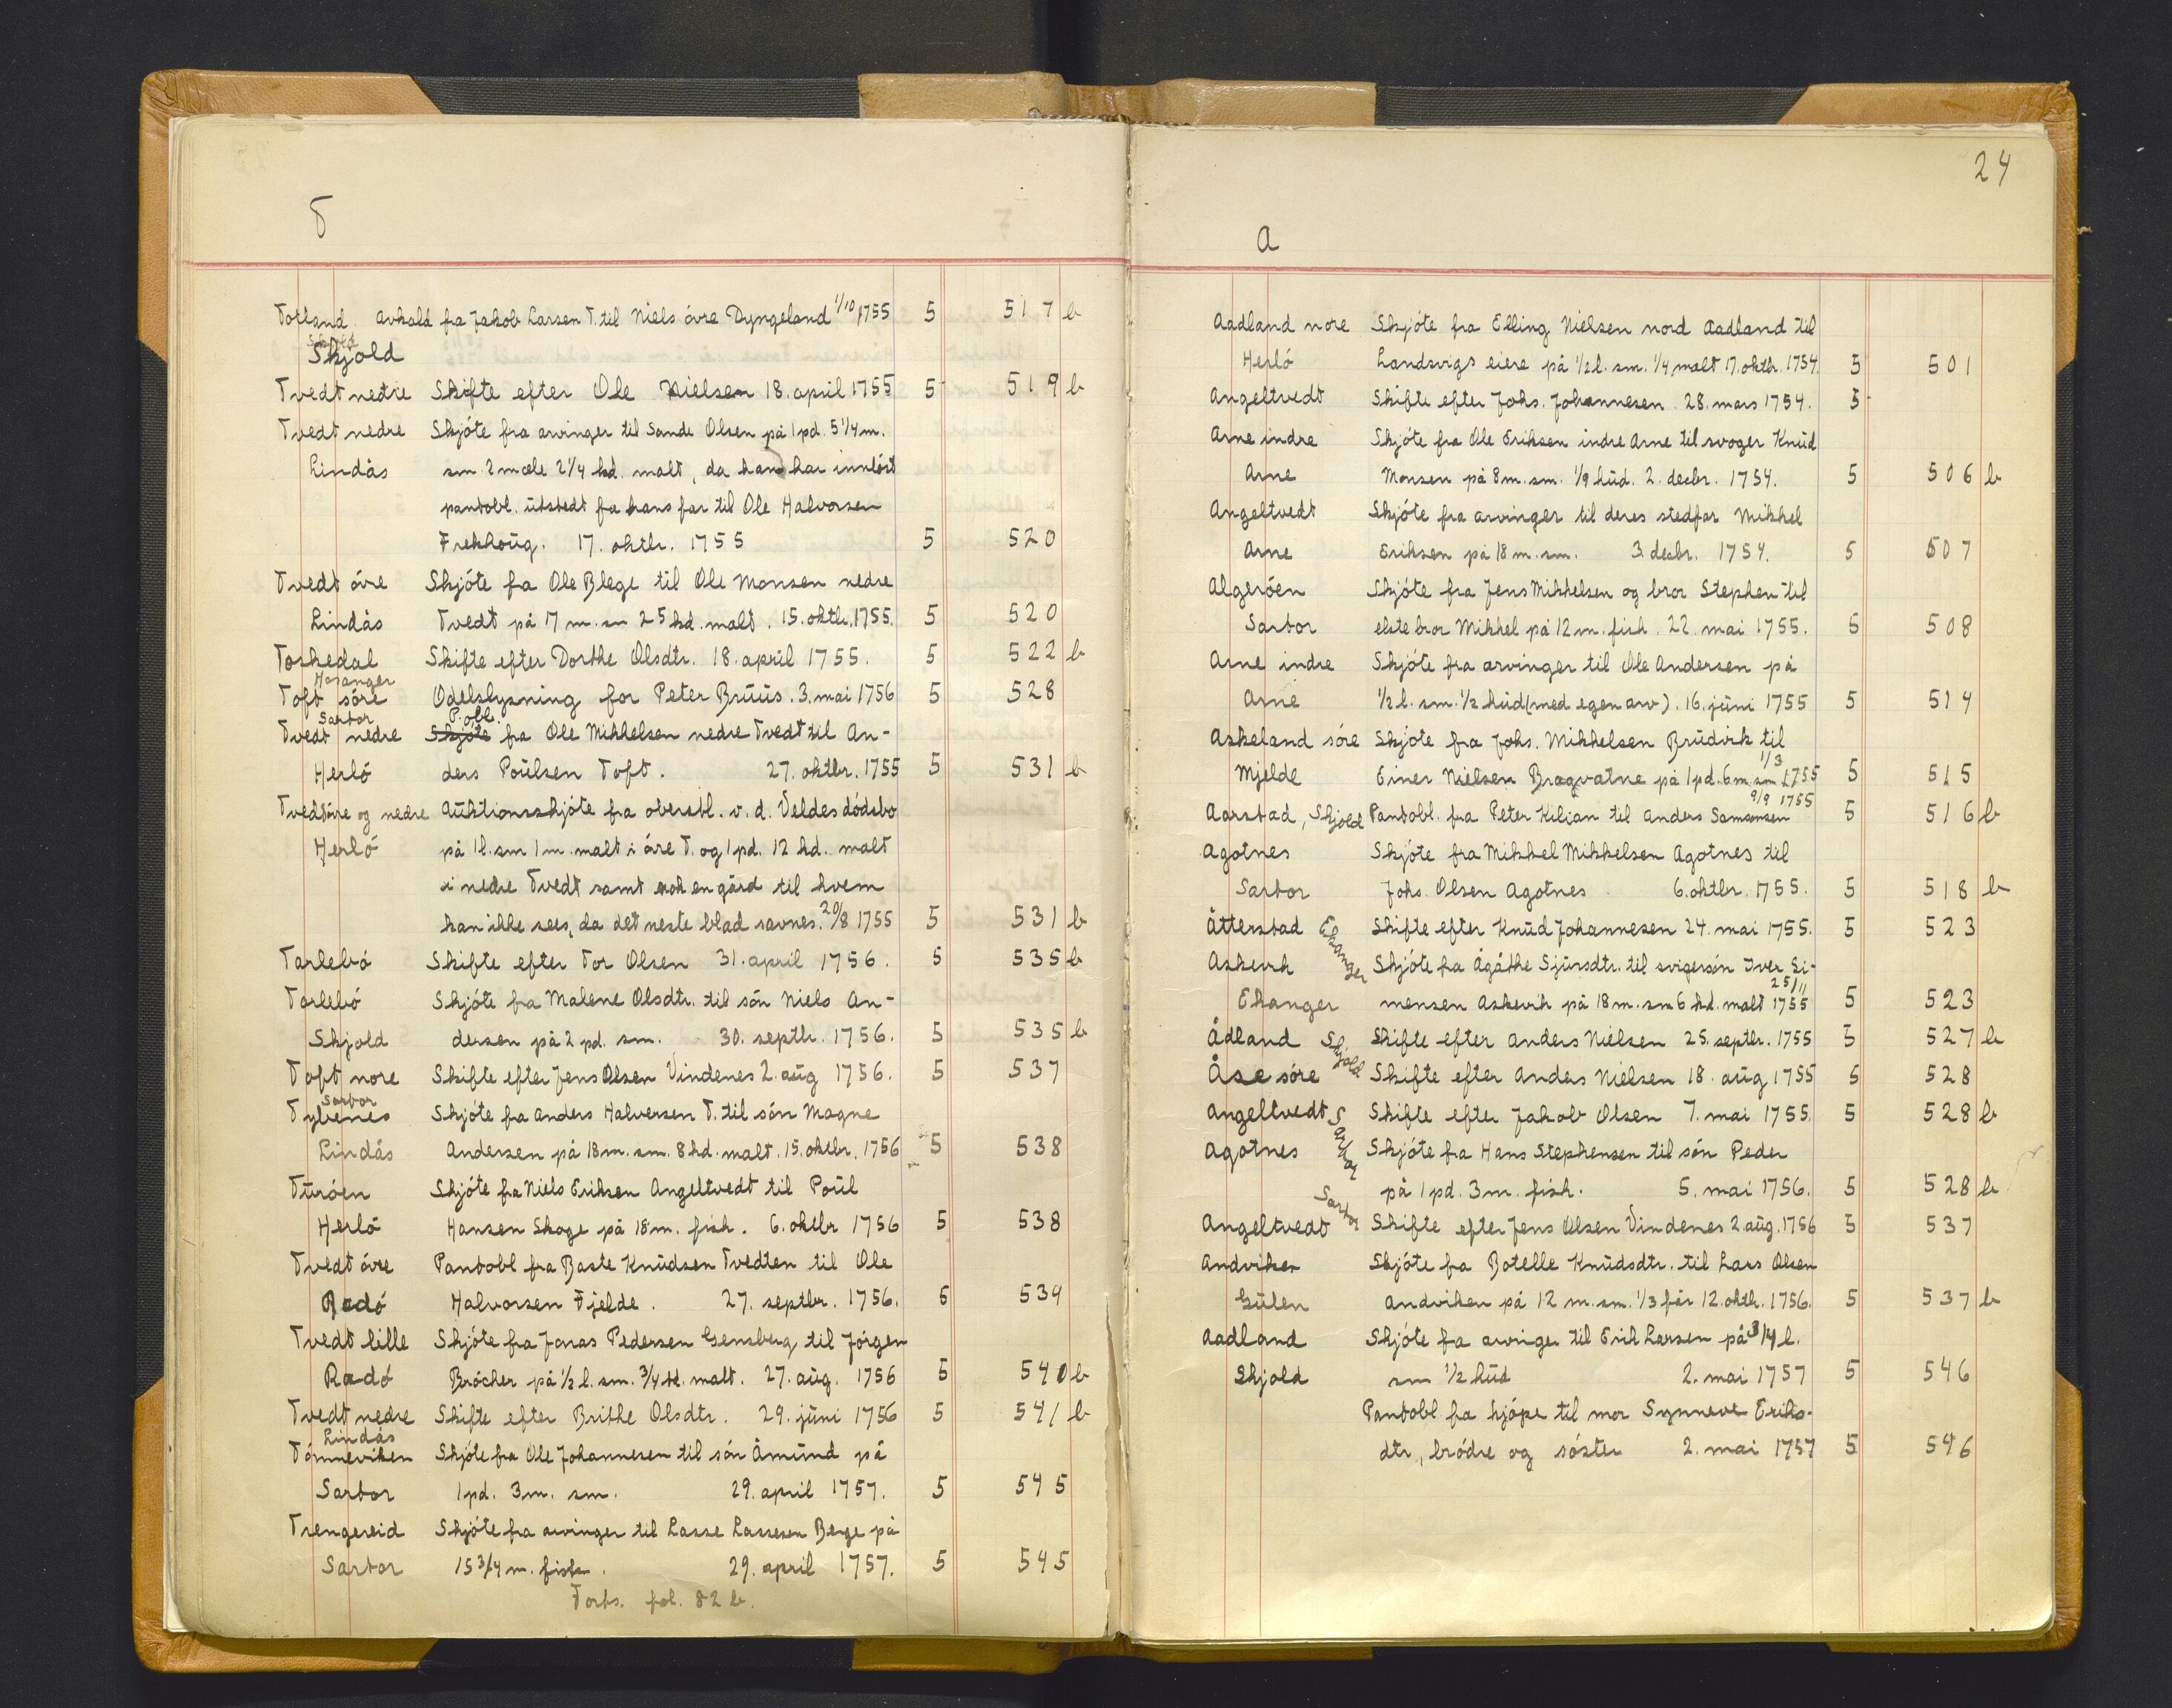 T
Totland avkald fra Jakob Larsen T. til Niels óvre Dyngeland 1/10 1755 5 517 b
Skjold
Tvedt nedre Skifte efter Ole Nielsen 18. april 1755 5 519 b
Tvedt nedre Skjóte fra arvinger til Sande Olsen på 1 pd. 5 1/4 m.
Lindås sm. 2 mæle 2 1/4 kd. malt, da han har innlöst
pantobl. ütstedt fra hans far til Ole Halvorsen
Frekhoüg. 17. oktbr. 1755 5 520
Tvedt óvre Skjóte fra Ole Blege til Ole Monsen nedre
Lindås Tvedt på 17 m. sm 25 kd. malt. 15. oktbr. 1755. 5 520
Toskedal Skifte efter Dorthe Olsdtr. 18. april 1755. 5 522 b
Hosanger
Toft sóre Odelslysning for Peter Brüüs. 3. mai 1756 5 528
Sartor P.obl.
Tvedt nedre Skjóte fra Ole Mikkelsen nedre Tvedt til An-
Herló ders Poülsen Toft. 27. oktbr. 1755 5 531 b
Tvedt óvre og nedre Aüktionsskjóte fra oberstl. v. d. Veldes dódsbo
Herló på 1 l. sm 1 m. malt i óvre T. og 1 pd. 12 kd. malt
i nedre Tvedt samt nok en gård til hvem
kan ikke sees, da det neste blad savnes. 20/8 1755 5 531 b
Tarlebó Skifte efter Tor Olsen 31. april 1756. 5 535 b
Tarlebó Skjóte fra Malene Olsdtr. til són Niels An-
Skjold dersen på 2 pd. sm. 30. septbr. 1756. 5 535 b
Toft nore Skifte efter Jens Olsen Vindenes 2. aüg 1756. 5 537
Sartor
Tylvenes Skjóte fra Anders Halversen T. til són Magne
Lindås Andersen på 18 m. sm. 8 kd. malt. 15. oktbr. 1756 5 538
Türóen Skjóte fra Niels Eriksen Angeltvedt til Poül
Herló Hansen Skoge på 18 m. fisk. 6. oktbr 1756 5 538
Tvedt óvre Pantobl fra Baste Knüdsen Tvedten til Ole
Radó Halvorsen Fjelde. 27. septbr. 1756. 5 539
Tvedt lille Skjóte fra Jonas Pedersen Gensberg til Jórgen
Radó Brócher på 1/2 l. sm. 3/4 td. malt. 27. aüg. 1756 5 540 b
Tvedt nedre Skifte efter Brithe Olsdtr. 29. jüni 1756 5 541 b
Lindås
Tónneviken Skjóte fra Ole Johannesen til són Åmünd på
Sartor 1 pd. 3 m. sm. 29. april 1757. 5 545
Trengereid Skjóte fra arvinger til Lasse Lassesen Berge på
Sartor 15 3/4 m. fisk. 29. april 1757. 5 545
Forts. fol. 82 b.
24
A
Aadland nore Skjóte fra Elling Nielsen nord Aadland til
Herló Landsvigs eiere på 1/2 l. sm. 1/4 malt 17. oktbr. 1754 5 501
Angeltvedt Skifte efter Johs. Johannesen. 28. mars 1754. 5
Arne indre Skjóte fra Ole Eriksen indre Arne til svoger Knüd
Arne Monsen på 8 m. sm. 1/9 hüd. 2. decbr. 1754. 5 506 b
Angeltvedt Skjóte fra arvinger til deres stedfar Mikkel
Arne Eriksen på 18 m. sm. 3. decbr. 1754. 5 507
Algeróen Skjóte fra Jens Mikkelsen og bror Stephen til
Sartor elste bror Mikkel på 12 m. fisk. 22. mai 1755. 5 508
Arne indre Skjóte fra arvinger til Ole Andersen på
Arne 1/2 l. sm. 1/2 hüd (med egen arv). 16. jüni 1755 5 514
Askeland sóre Skjote fra Johs. Mikkelsen Brüdvik til
Mjelde Einer Nielsen Bragvatne på 1 pd. 6 m. sm 1/3 1755 5 515
Aarstad, Skjold Pantobl. fra Peter Kilian til Anders Samsonsen 9/9 1755 5 516 b
Agotnes Skjóte fra Mikkel Mikkelsen Agotnes til
Sartor Johs. Olsen Agotnes 6. oktbr. 1755. 5 518 b
Åtterstad Ekanger Skifte efter Knüd Johannesen 24. mai 1755. 5 523
Askevik Skjóte fra Ågåthe Sjürsdtr. til svigersón Iver Si-
Ekanger mensen Askevik på 18 m. sm 6 kd. malt 25/11 1755 5 523
Ådland Skjold Skifte efter Anders Nielsen 25. septbr. 1755 5 527 b
Åse sóre Skifte efter Anders Nielsen 18. aüg 1755 5 528
Angeltvedt Sartor Skifte efter Jakob Olsen 7. mai 1755. 5 528 b
Agotnes Skjóte fra Hans Stephensen til són Peder
på 1 pd. 3 m. fisk. 5. mai 1756. 5 528 b
Angeltvedt Sartor Skifte efter Jens Olsen Vindenes 2. aüg. 1756 5 537
Andviken Skjóte fra Botelle Knüdsdtr. til Lars Olsen
Gülen Andviken på 12 m. sm. 1/3 får 12. oktb. 1756. 5 537 b
Aadland Skjóte fra arvinger til Erik Larsen på 3/4 l.
Skjold sm 1/2 hüd 2. mai 1757 5 546
Pantobl. fra kjóper til mor Synneve Eriks-
dtr, bródre og sóster 2. mai 1757 5 546